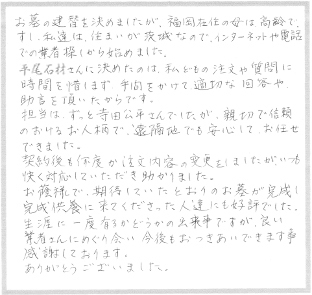 お墓の建替を決めましたが、福岡在住の母は高齢で
すし、私達は、住まいが茨城なので、インターネットや電話
での業者探しから始めました。
平尾石材さんに決めたのは、私どもの注文や質問に
時間を惜します、手間をかけて適切な回答や、
助言を頂いたからです。
担当は、ずっと寺田公平さんでしたが、親切で信頼
のおけるお人柄で、遠隔地でも安心して、お任せ
できました。
契約後も何度か注文内容の変更をしましたがいつも
快く対応していただき助かりました。
お陰様で、期待していたとおりのお墓が完成し
完成供養に来てくださった人達にも好評でした。
生涯に一度有るかどうかの出来事ですが、良い
業者さんにめぐり会い今後もおつきあいできます事
感謝しております。
ありがとうございました。